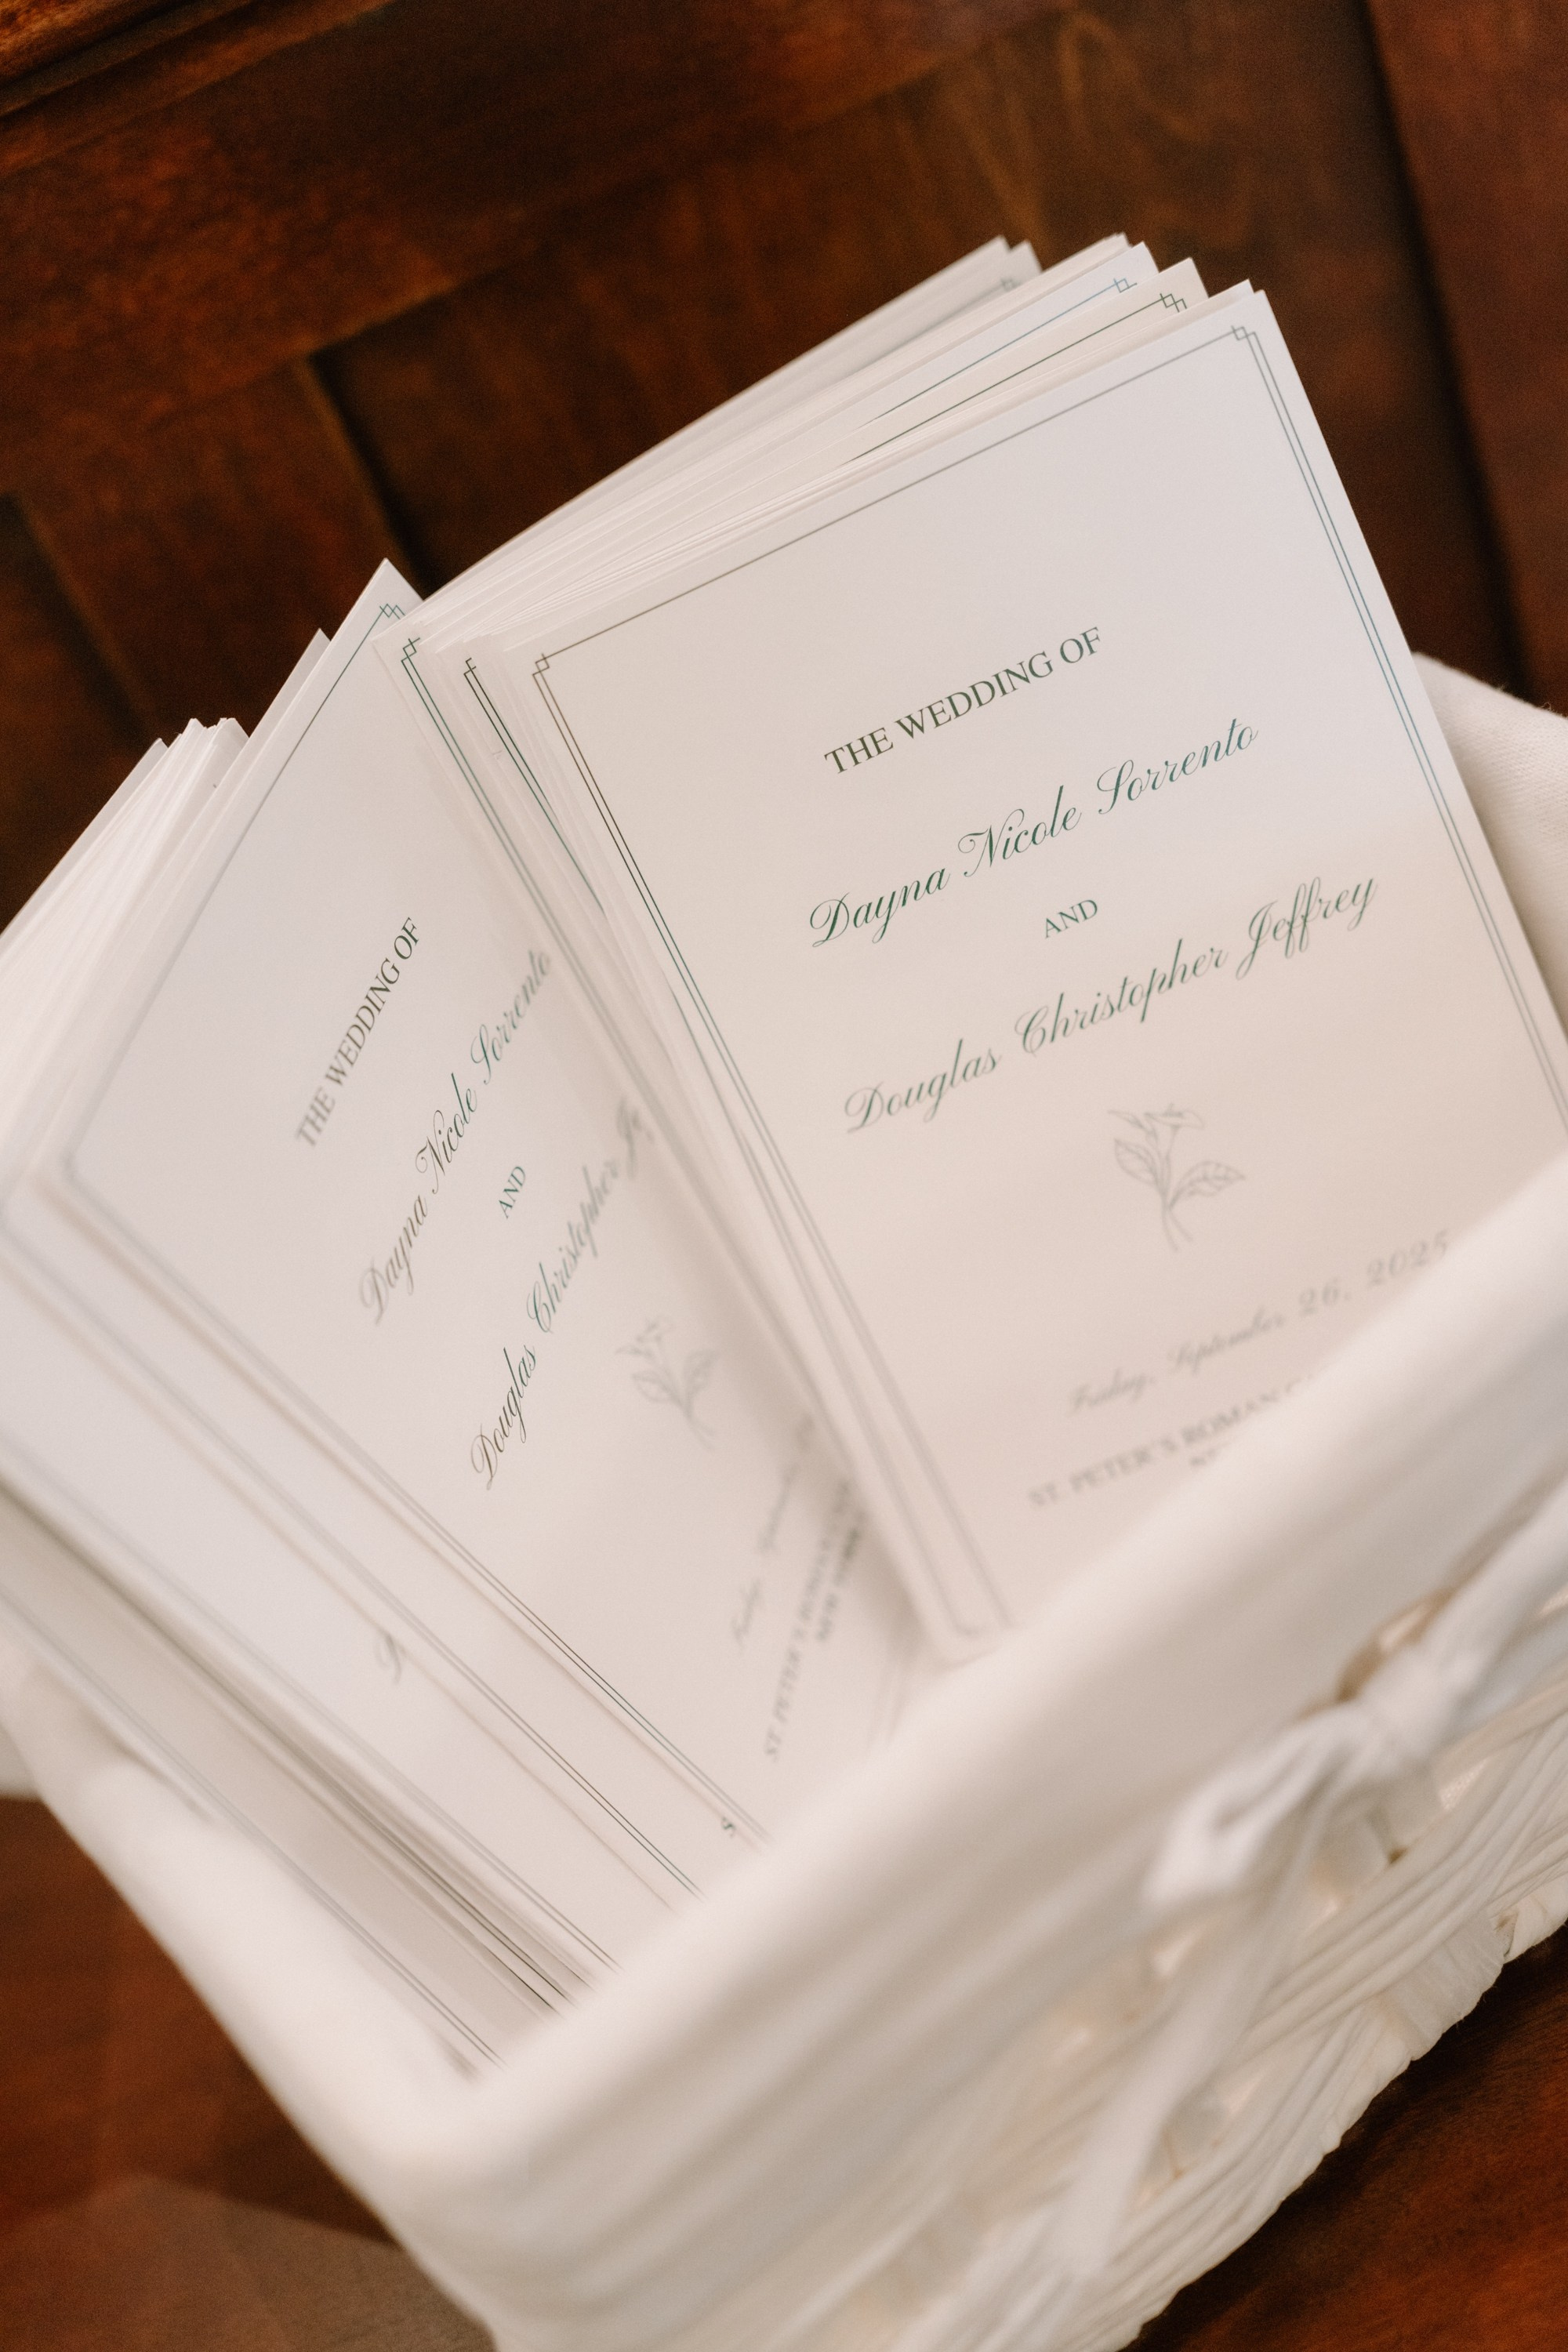 THE WEDDING OF
Dayna Nicole Sorrento
AND
Douglas Christopher Jeffrey
Friday, September 26, 2025
ST. PETER'S ROMAN
THE WEDDING OF
Dayna Nicole Sorrento
AND
Douglas Christopher Je
ST. PETER'S ROMAN
NEW